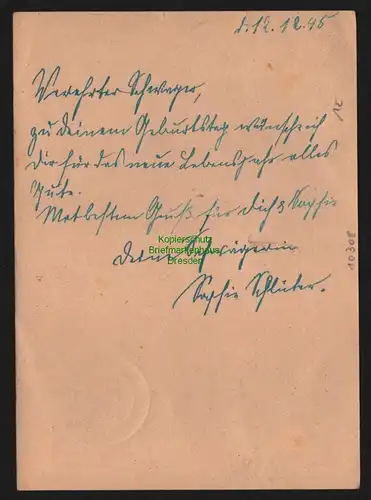 d. 12.12.45
Verehrter Schwager,
zu deinem Geburtstag wünsche ich
Dir für das neue Lebensjahr alles
Gute.
Mit bestem Gruß für Dich & Sophie
deine Schwägerin
Sophie Schlüter.
Kopierschutz
Briefmarkenhaus
Dresden
12
10308